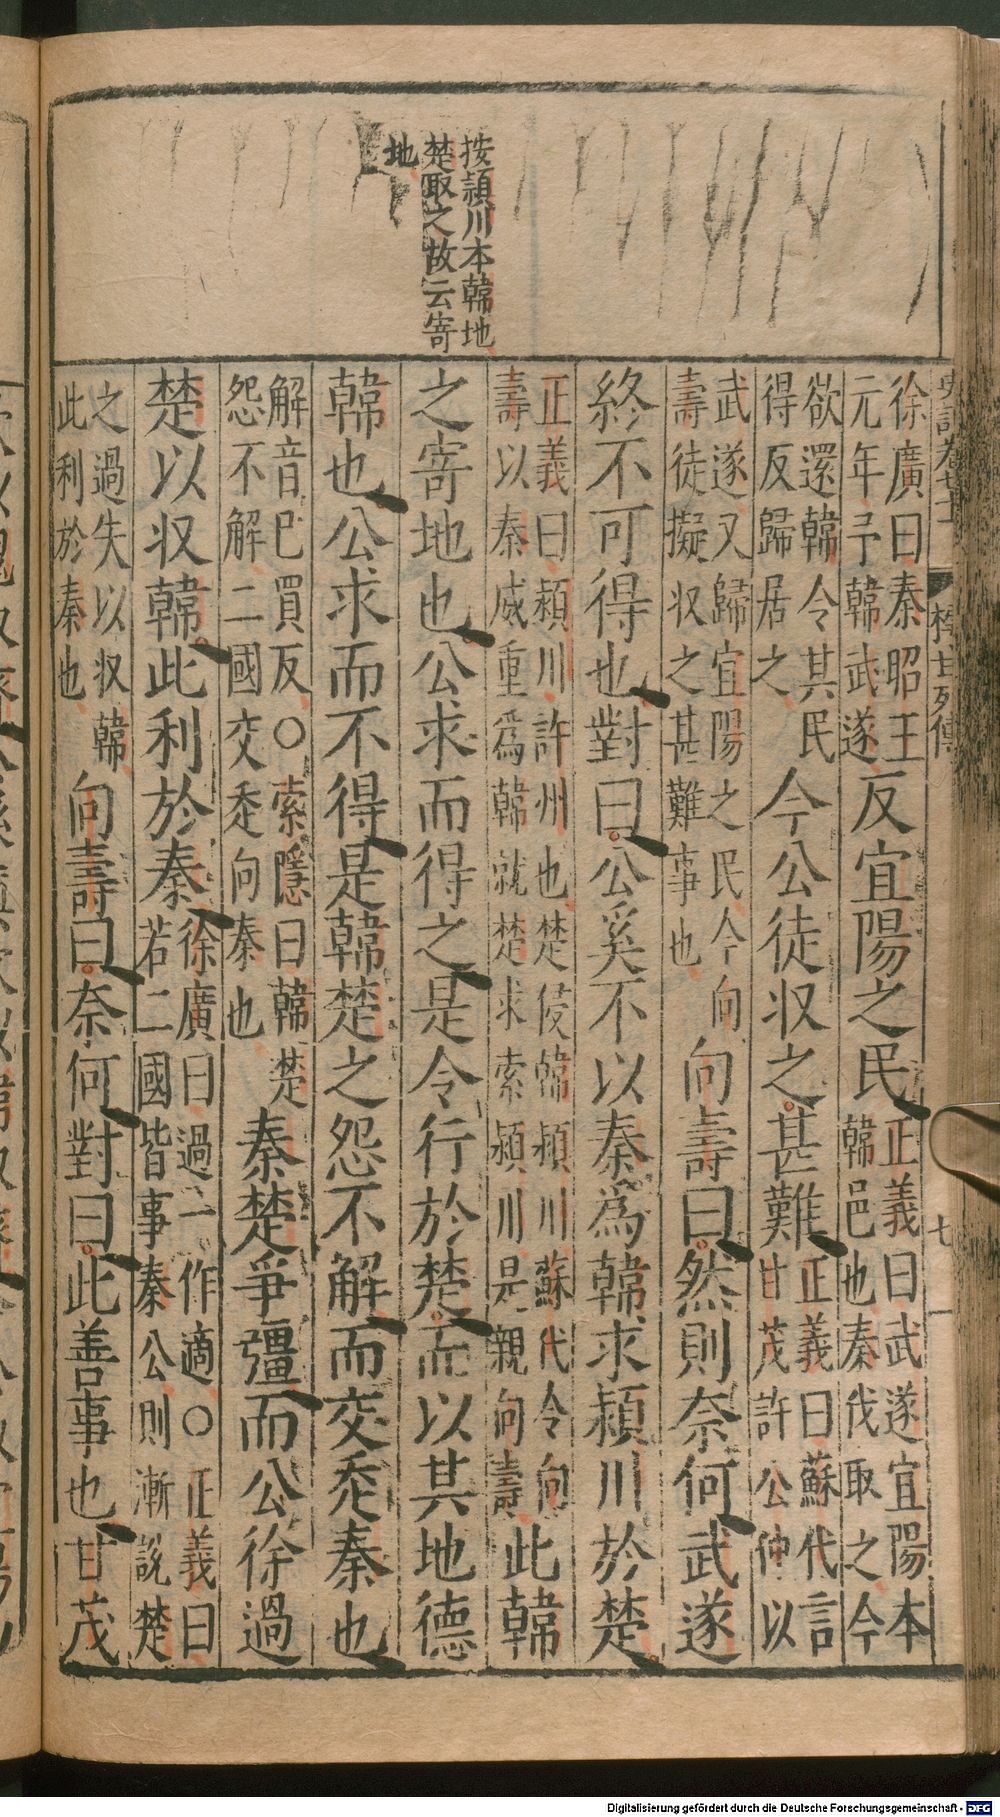 按潁川本韓地
楚取之故云寄
地
徐廣曰秦昭王
元年予韓武遂
反宜陽之民
正義曰武遂宜陽本
韓邑也秦伐取之今
欲還韓令其民
得反歸居之
今公徒収之甚難
正義曰蘇代言
甘茂許公仲以
武遂又歸宜陽之民今向
壽徒擬収之甚難事也
向壽曰然則奈何武遂
終不可得也對曰公奚不以秦爲韓求潁川於楚
正義曰潁川許州也楚侵韓潁川蘇代令向
壽以秦威重爲韓就楚求索潁川是親向壽
此韓
之寄地也公求而得之是令行於楚而以其地德
韓也公求而不得是韓楚之怨不解而交走秦也
解音巳買反○索隱曰韓楚
怨不解二國交走向秦也
秦楚爭彊而公徐過
楚以収韓此利於秦
徐廣曰過一作適○正義曰
若二國皆事秦公則漸說楚
之過失以収韓
此利於秦也
向壽曰奈何對曰此善事也甘茂
史記卷七十一
樗甘列傳
七
Digitalisierung gefördert durch die Deutsche Forschungsgemeinschaft - DFG